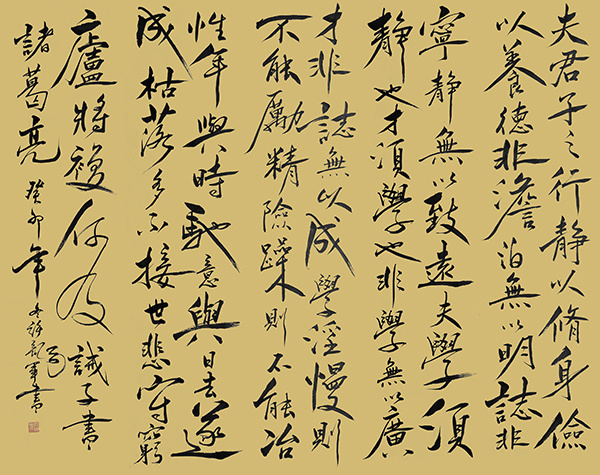 夫君子之行靜以脩身儉
以養德非澹泊無以明誌非
寧靜無以致遠夫學須
靜也才須學也非學無以廣
才非誌無以成學淫慢則
不能勵精險躁則不能冶
性年與時馳意與日去遂
成枯落多不接世悲守窮
廬將複何及 誡子書
諸葛亮 癸卯年冬 軍書